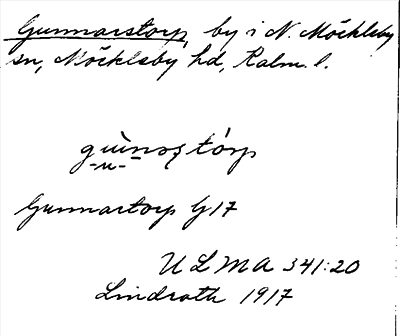 Gunnarstorp, by i N. Möckleby
sn, Möckleby hd, Kalm. l.
Gunnartorp G 17
ULMA 341:20
Lindroth 1917